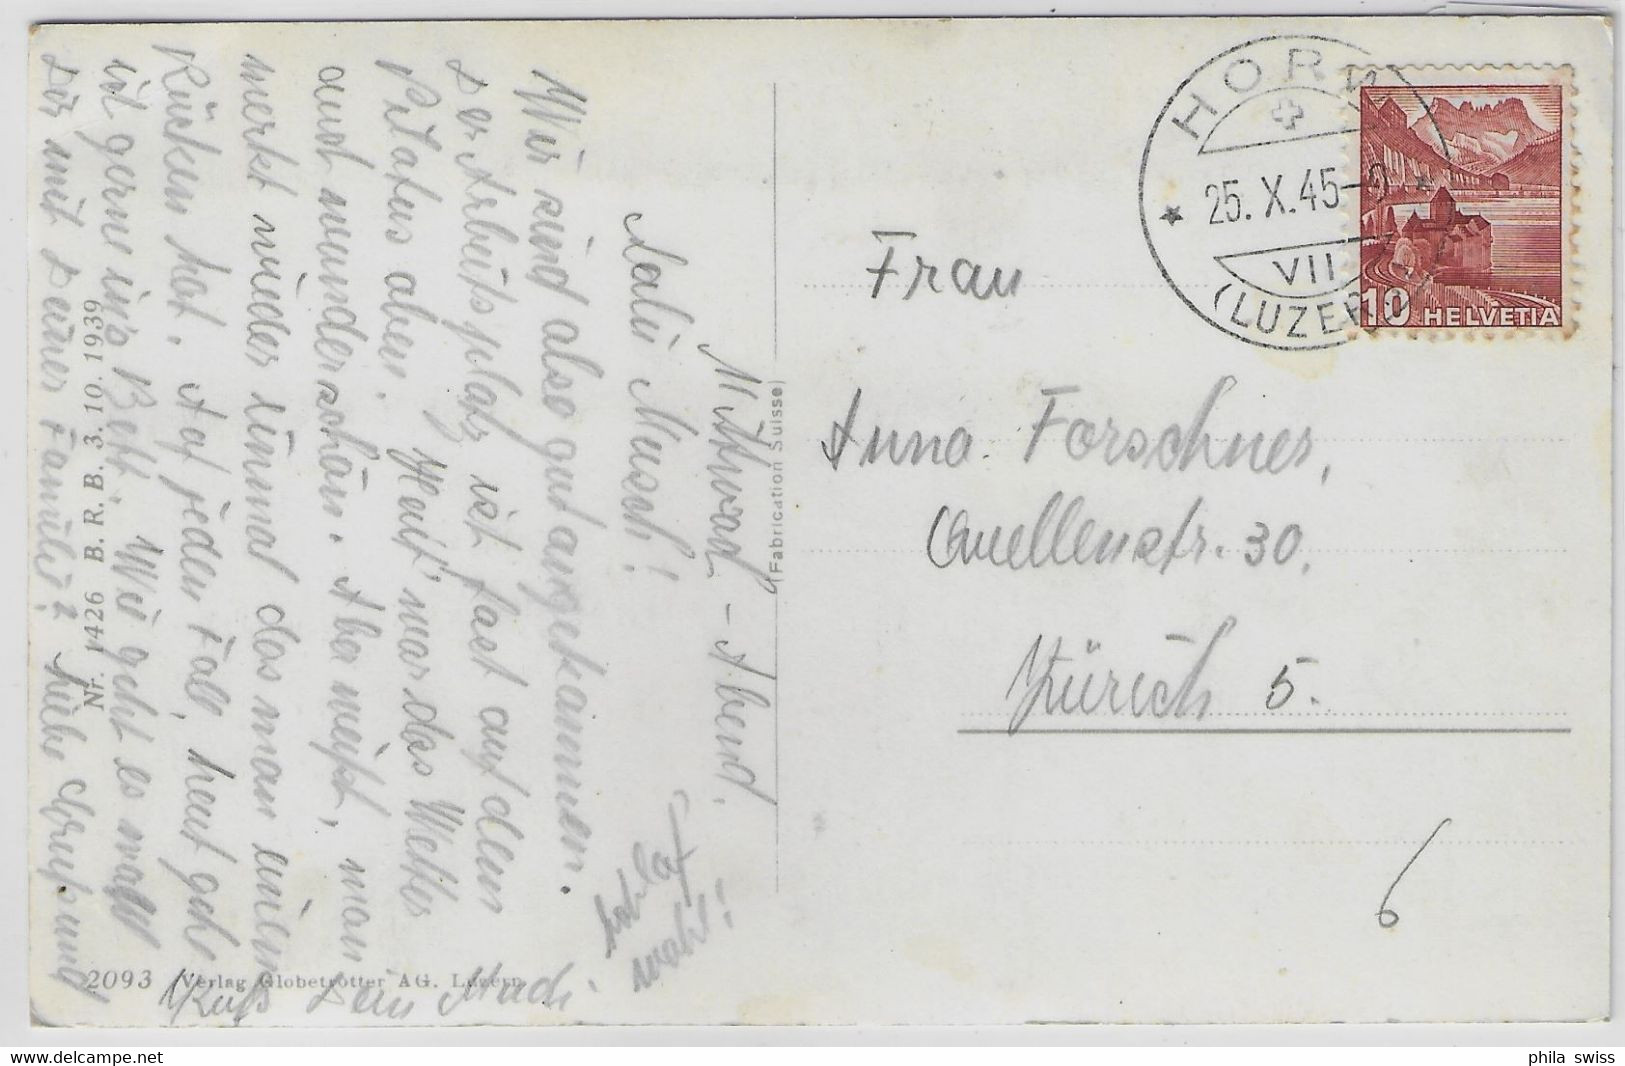 Mittwoch-Abend.
Salü Musch!
Wir sind also gut angekommen.
Der Arbeitsplatz ist fast auf dem
Pilatus oben. Heut' war das Wetter
und wunderschön. Aba meist, man
merkt wieder einmal das man einen
Rücken hat. Auf jeden Fall, heut geht
ich gerne in's Bett. Wie geht es
Dir mit Deiner Familie? Liebe Grüße und
Kuss Dein
Schlaf
wohl!
Nr. 1426 B. R. B. 3. 10. 1939
2093 Verlag Globetrotter AG. Luzern
(Fabrication Suisse)
HORW
25. X. 45
VII
(LUZERN)
10 HELVETIA
Frau
Anna Forschner,
Quellenstr. 30.
Zürich 5.
6
phila swiss